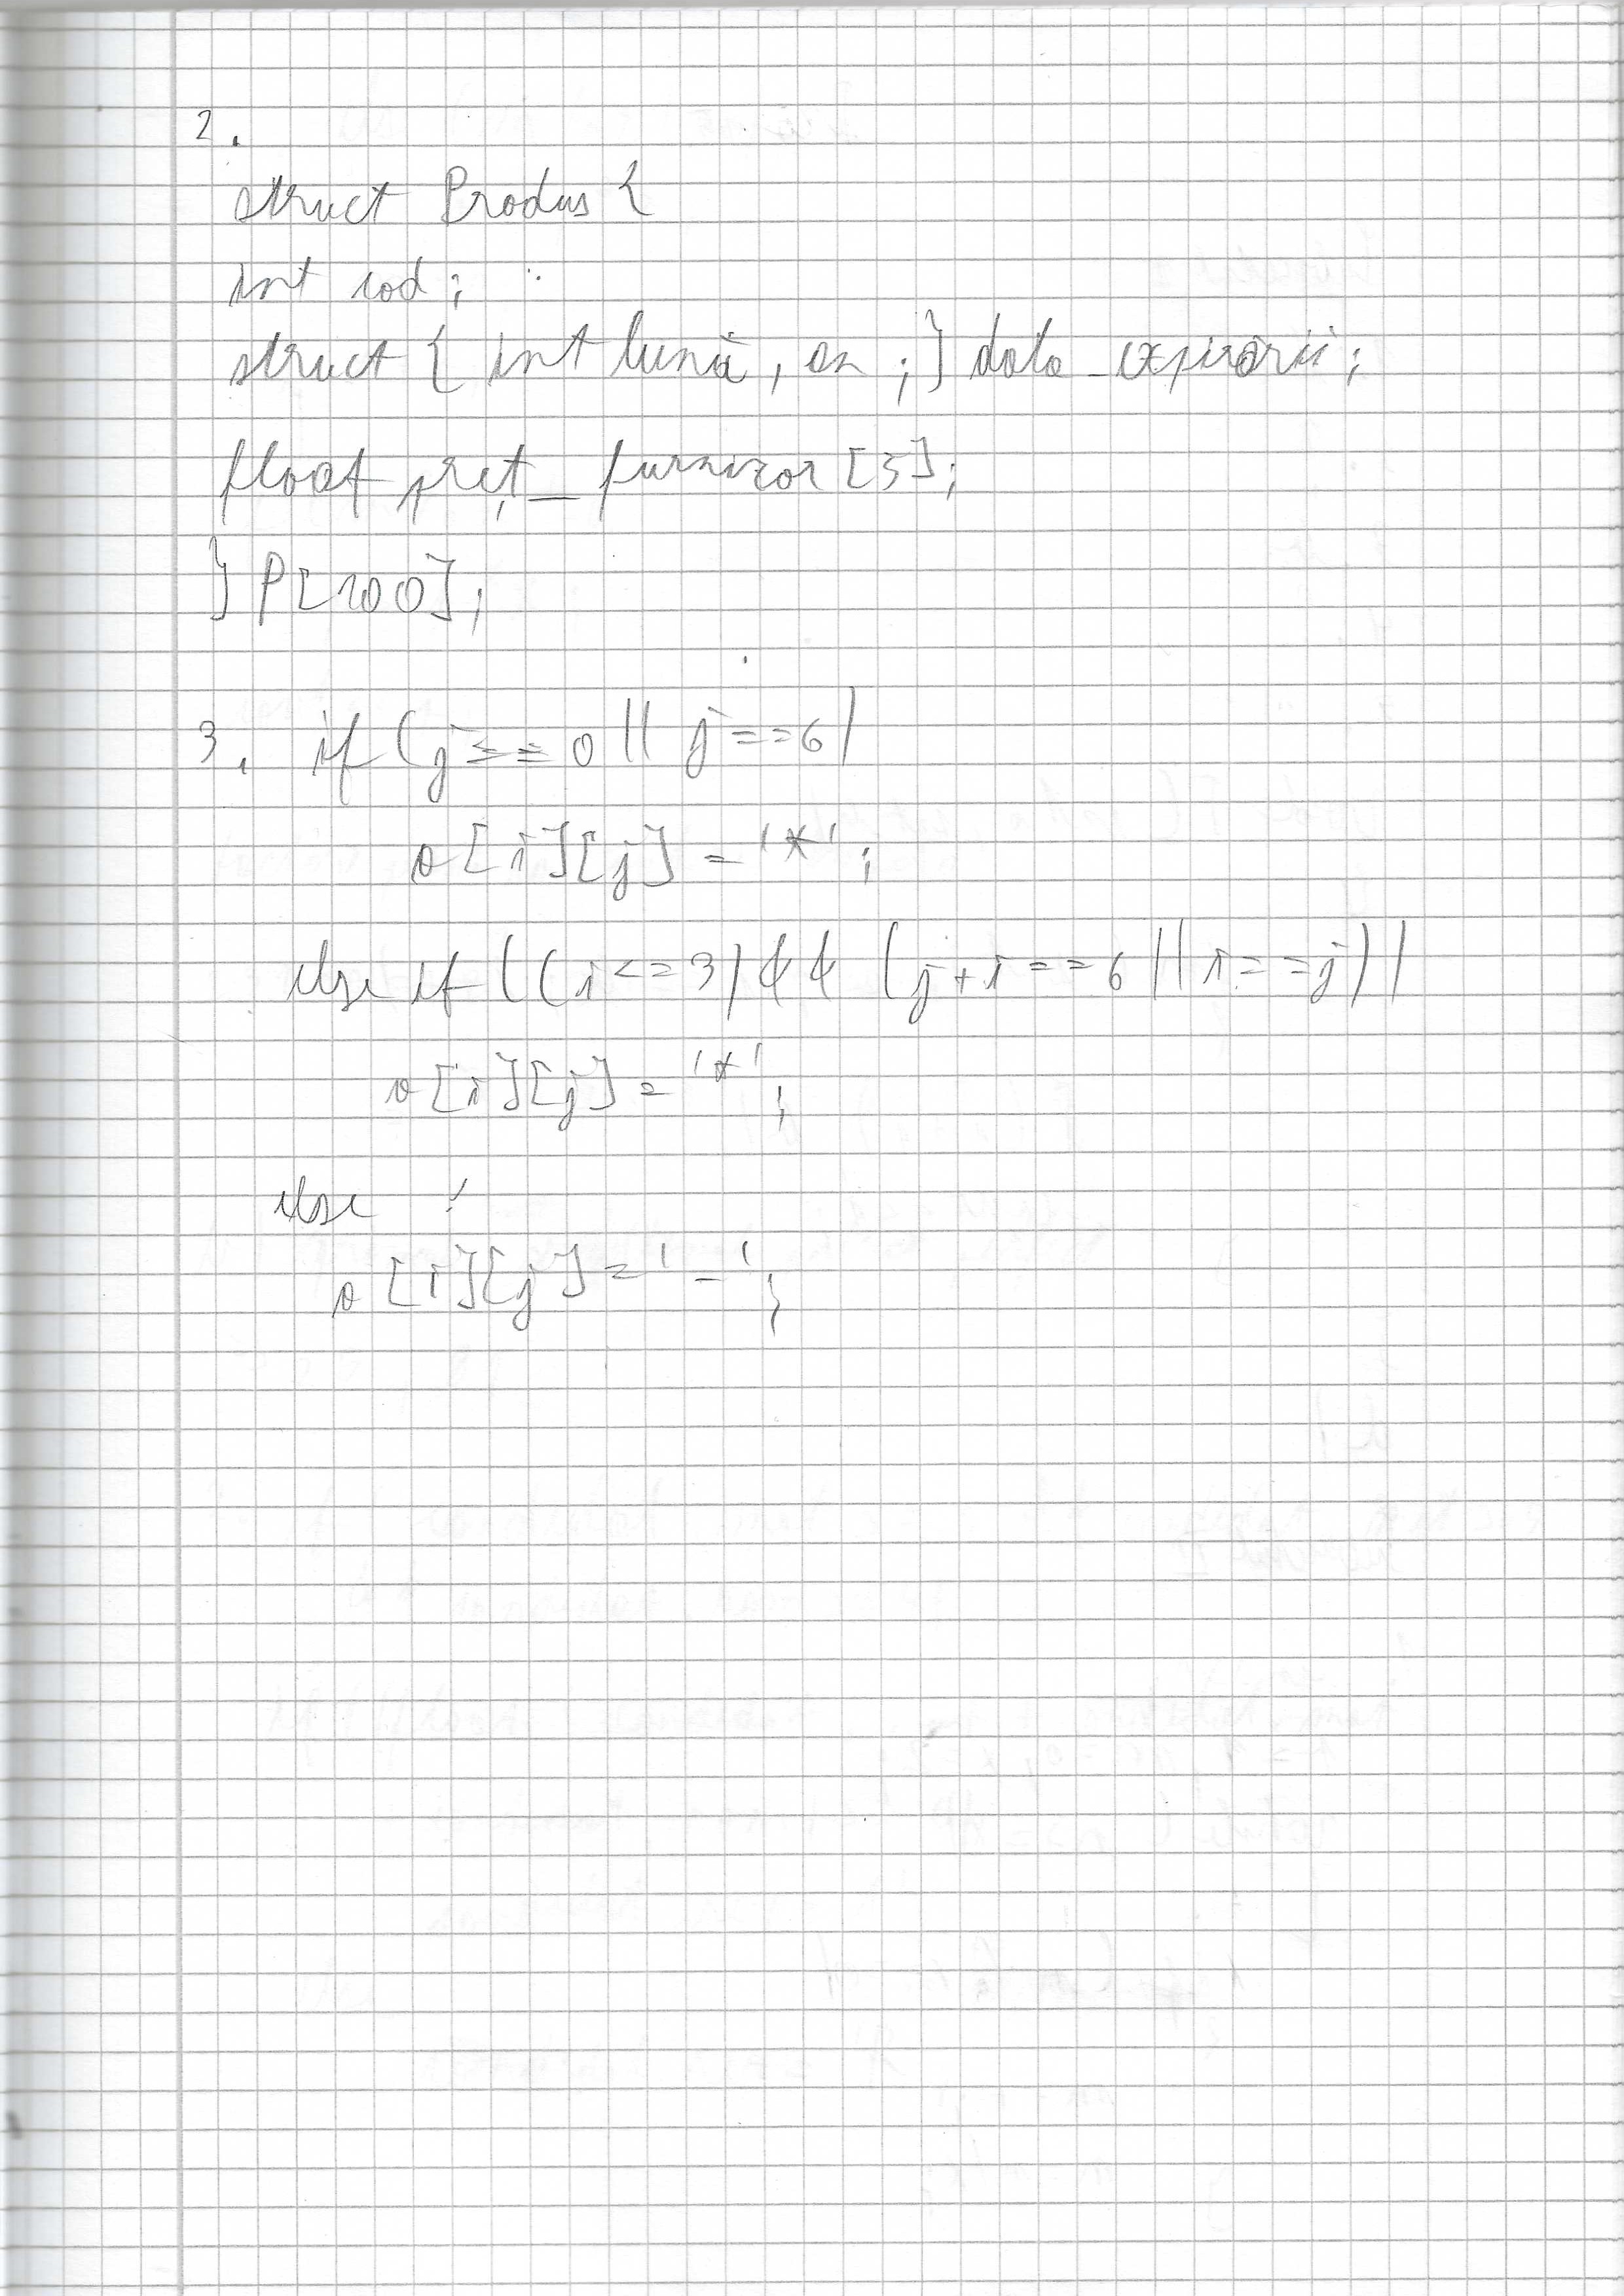 2.
struct Produs {
int cod;
struct { int lună, an ;} data_expirării;
float preț_furnizor [3];
} P[100];
3. if (j == 0 || j == 6)
a[i][j] = '*';
else if ((i <= 3) && (j+i == 6 || i == j))
a[i][j] = '*';
else
a[i][j] = '_';